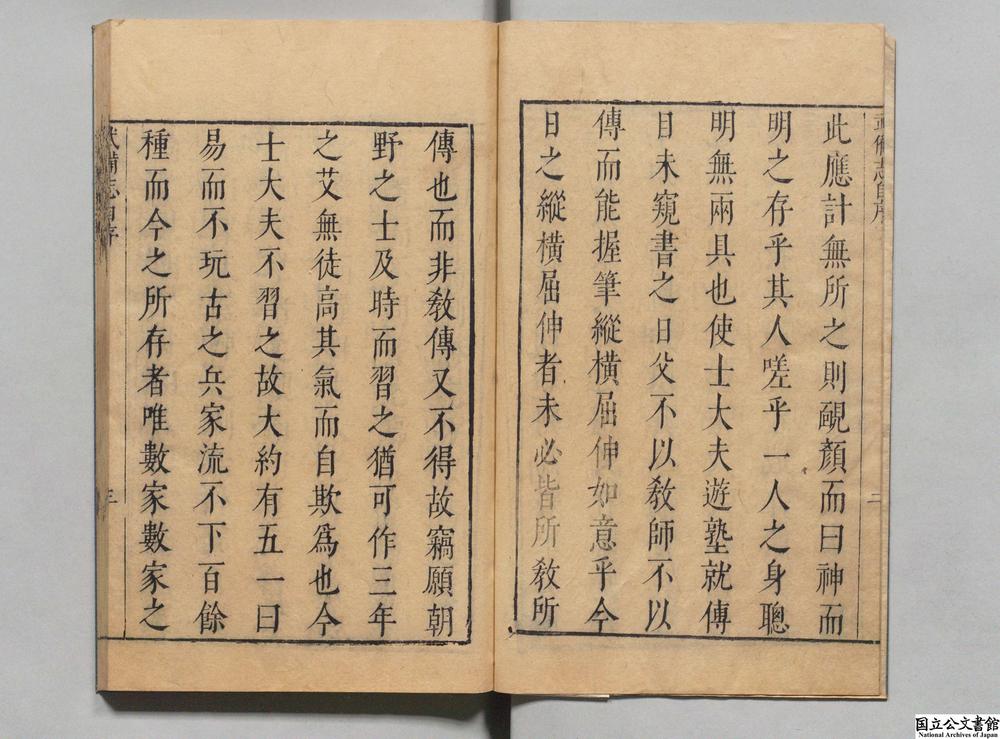 武備志自序
二
此應計無所之則靦顏而曰神而
明之存乎其人嗟乎一人之身聰
明無兩具也使士大夫遊塾就傳
目未窺書之日父不以敎師不以
傳而能握筆縱橫屈伸如意乎今
日之縱橫屈伸者未必皆所敎所
傳也而非敎傳又不得故竊願朝
野之士及時而習之猶可作三年
之艾無徒高其氣而自欺爲也今
士大夫不習之故大約有五一曰
易而不玩古之兵家流不下百餘
種而今之所存者唯數家數家之
武備志自序
三
国立公文書館
National Archives of Japan